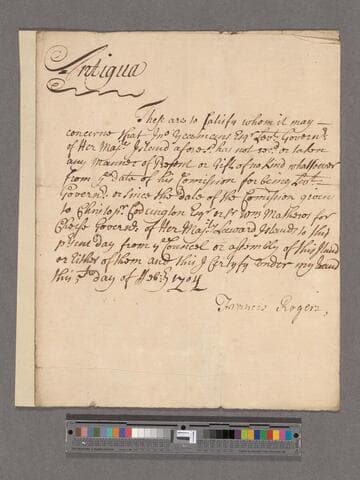 Antigua
These are to Satisfy whom it may
concerne that Jno Yeamans Esqr Leut. Govern.r
of Her Maj.s Island aforesd. has not recd. or taken
any Manner of Present or Gift of no kind whatsoever
from ye date of his Comission for being Leut.
Govern.r or since the date of the Comission given
to Christop.r Codrington Esqr or Sr Wm Mathews for
Cheife Govern.r of Her Maj.s Leeward Islands to this
p.sent day from ye Councel or Assembly of this Island
or Either of them and this I Certyfy under my hand
this day of Feb.ry 1704
Francis Rogers,